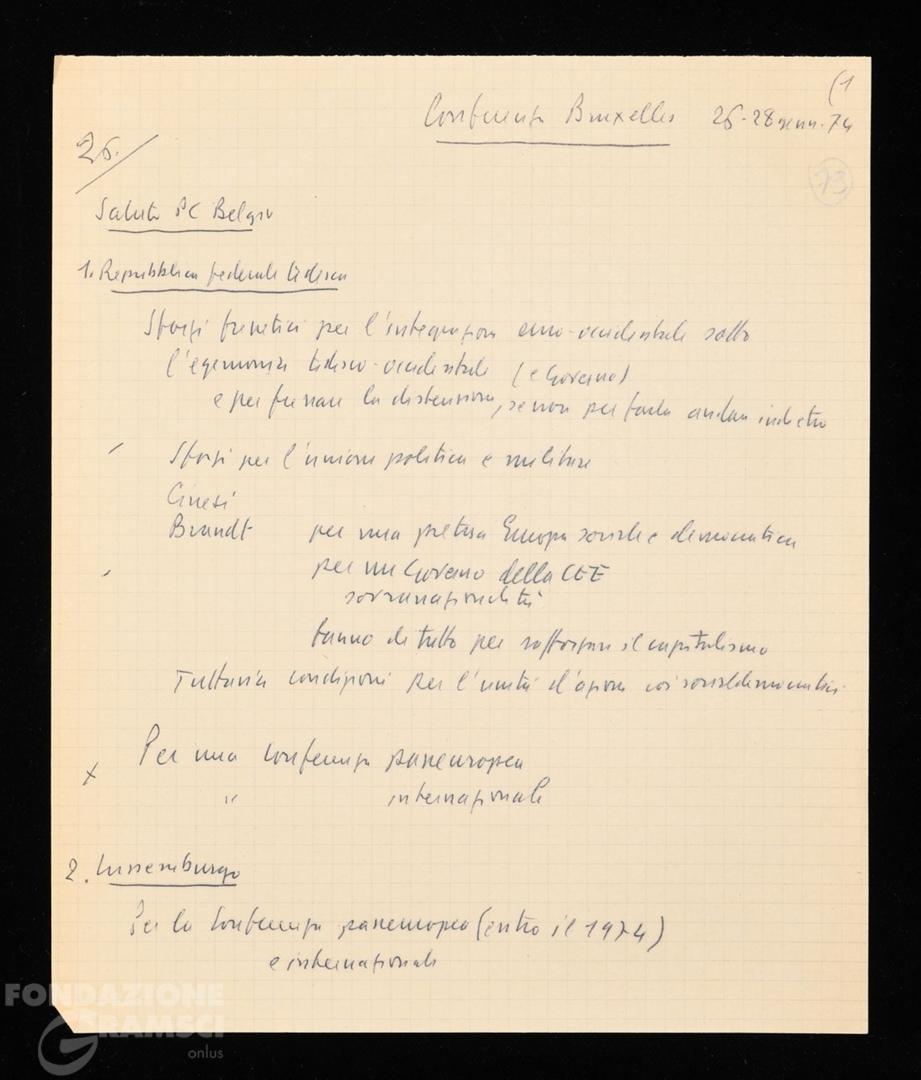 (1
Conferenza Bruxelles 26-28 genn. 74
26.
13
Saluto PC Belgio
1. Repubblica federale tedesca
Sforzi frenetici per l'integrazione euro-occidentale sotto
l'egemonia tedesco-occidentale (e Governo)
e per frenare la distensione, se non per farla andare indietro
Sforzi per l'unione politica e militare
Cinesi
Brandt per una pretesa Europa sociale e democratica
per un Governo della CEE
sovranazionalità
fanno di tutto per rafforzare il capitalismo
Tuttavia condizioni per l'unità d'azione coi socialdemocratici.
x Per una conferenza paneuropea
" internazionale
2. Lussemburgo
Per la Conferenza paneuropea (entro il 1974)
e internazionale
FONDAZIONE
GRAMSCI
onlus